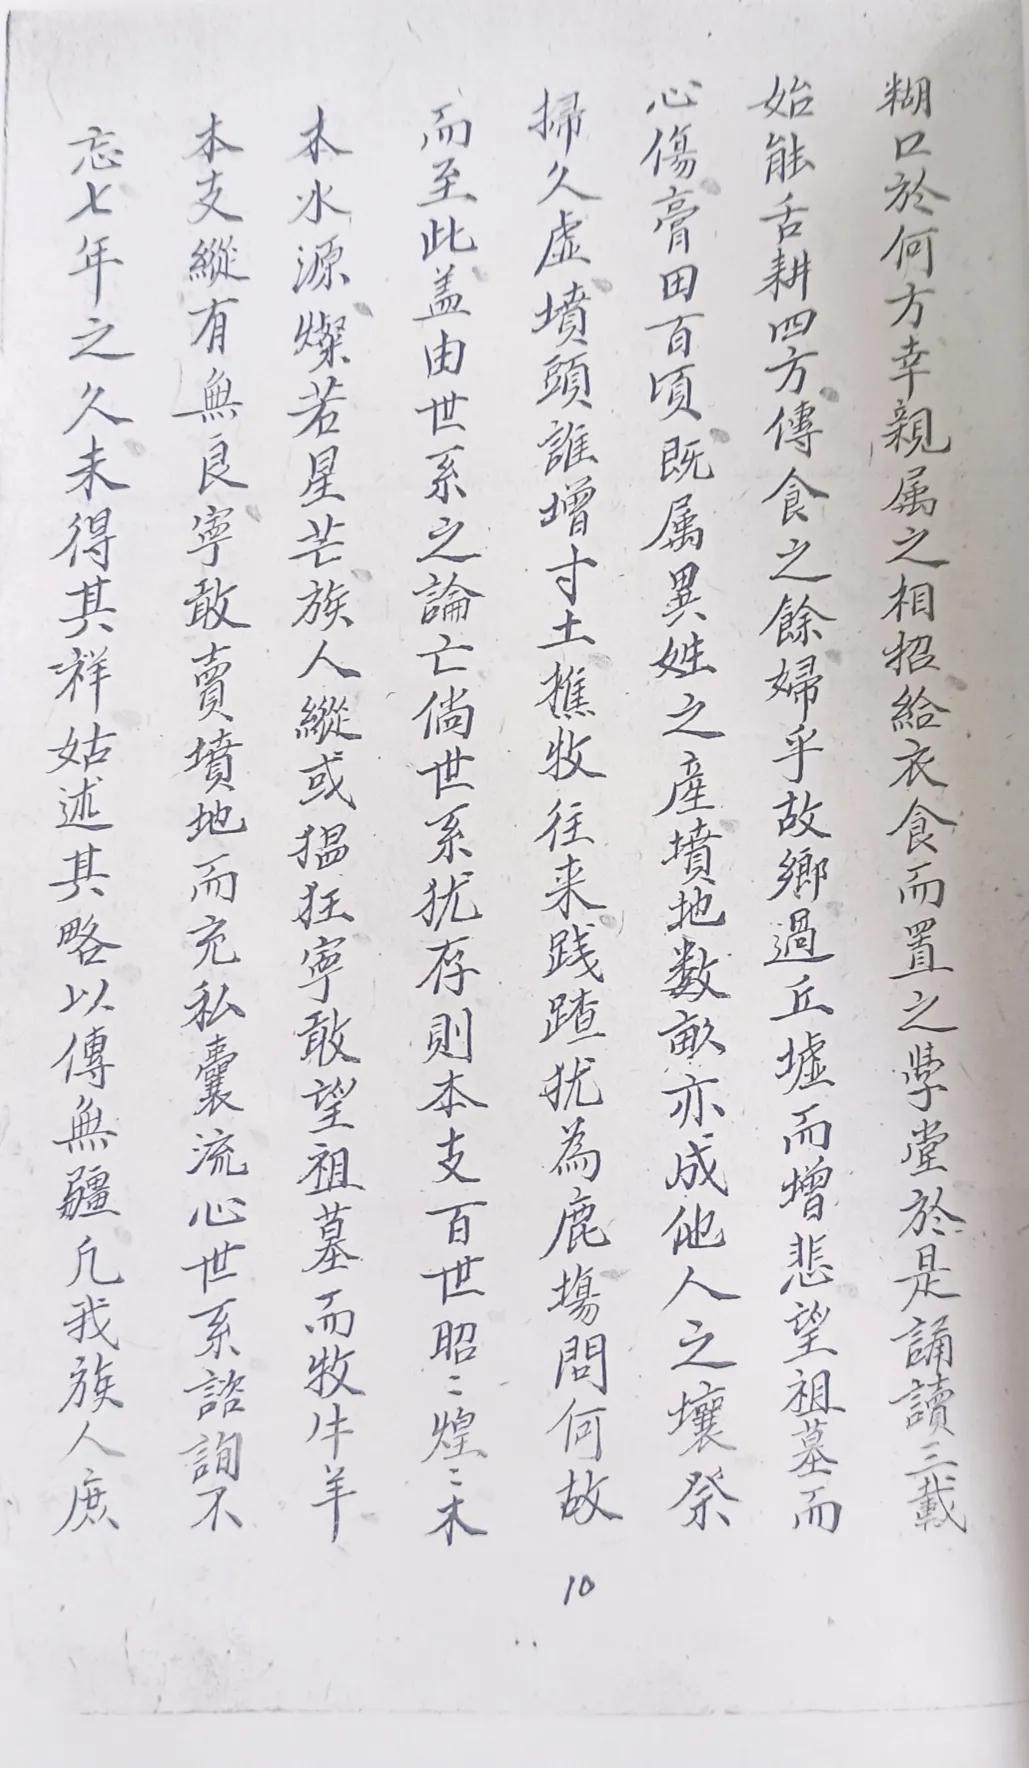 糊口於何方幸親属之相招給衣食而置之學堂於是誦讀三載
始能舌耕四方傳食之餘婦乎故鄉過丘墟而增悲望祖墓而
心傷膏田百頃既属異姓之産墳地数畝亦成他人之壤祭
掃久虛墳頭誰增寸土樵牧往来踐蹅犹為鹿塲問何故
而至此盖由世系之論亡倘世系犹存則本支百世昭〻煌〻木
本水源燦若星芒族人縱或猖狂寧敢望祖墓而牧牛羊
本支縱有無良寧敢賣墳地而充私囊流心世系諮詢不
忘七年之久未得其祥姑述其略以傳無疆凡我族人庶
10